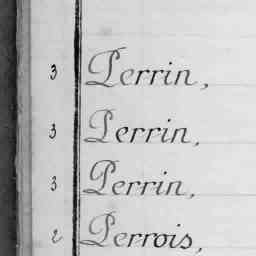 3 Perrin,
3 Perrin,
3 Perrin,
2 Perrois,